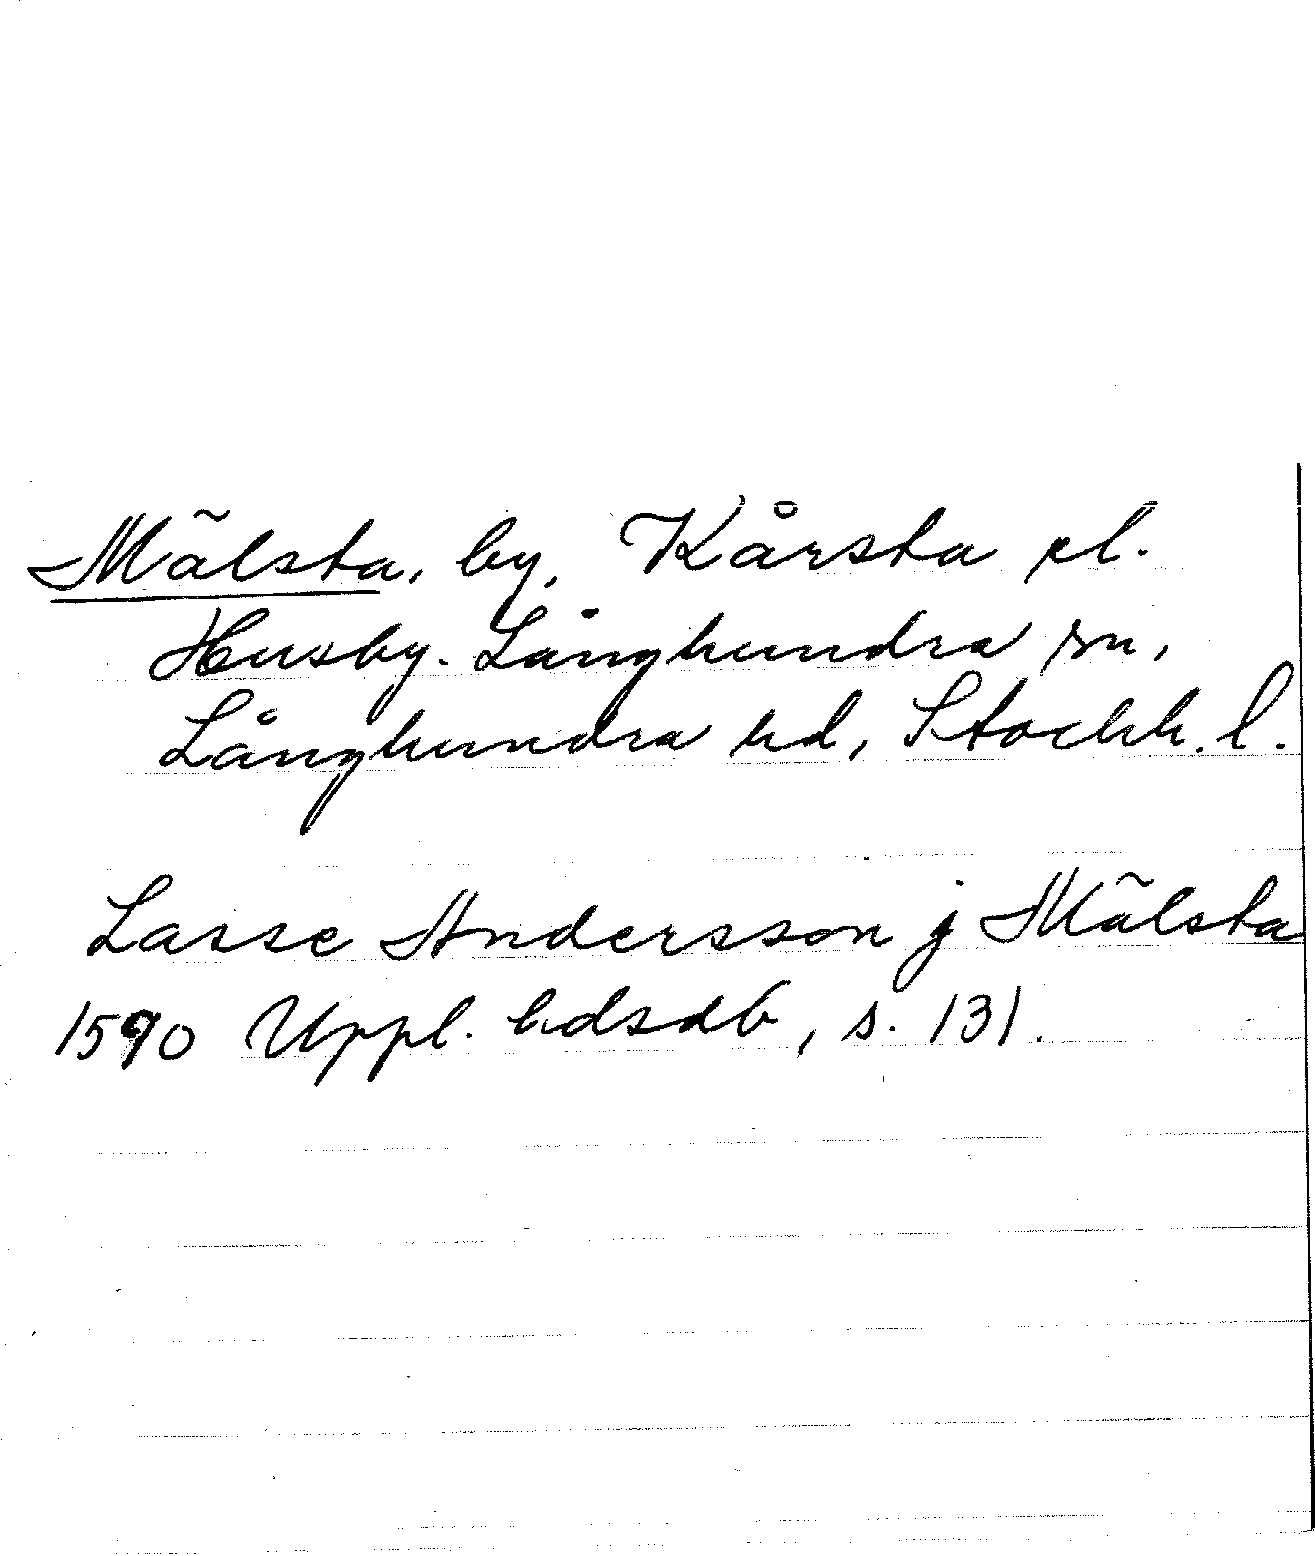 Mälsta, by, Kårsta el.
Husby-Långhundra sn,
Långhundra hd, Stockh. l.
Lasse Andersson j Mälsta
1590 Uppl. hdsdb, s. 131.